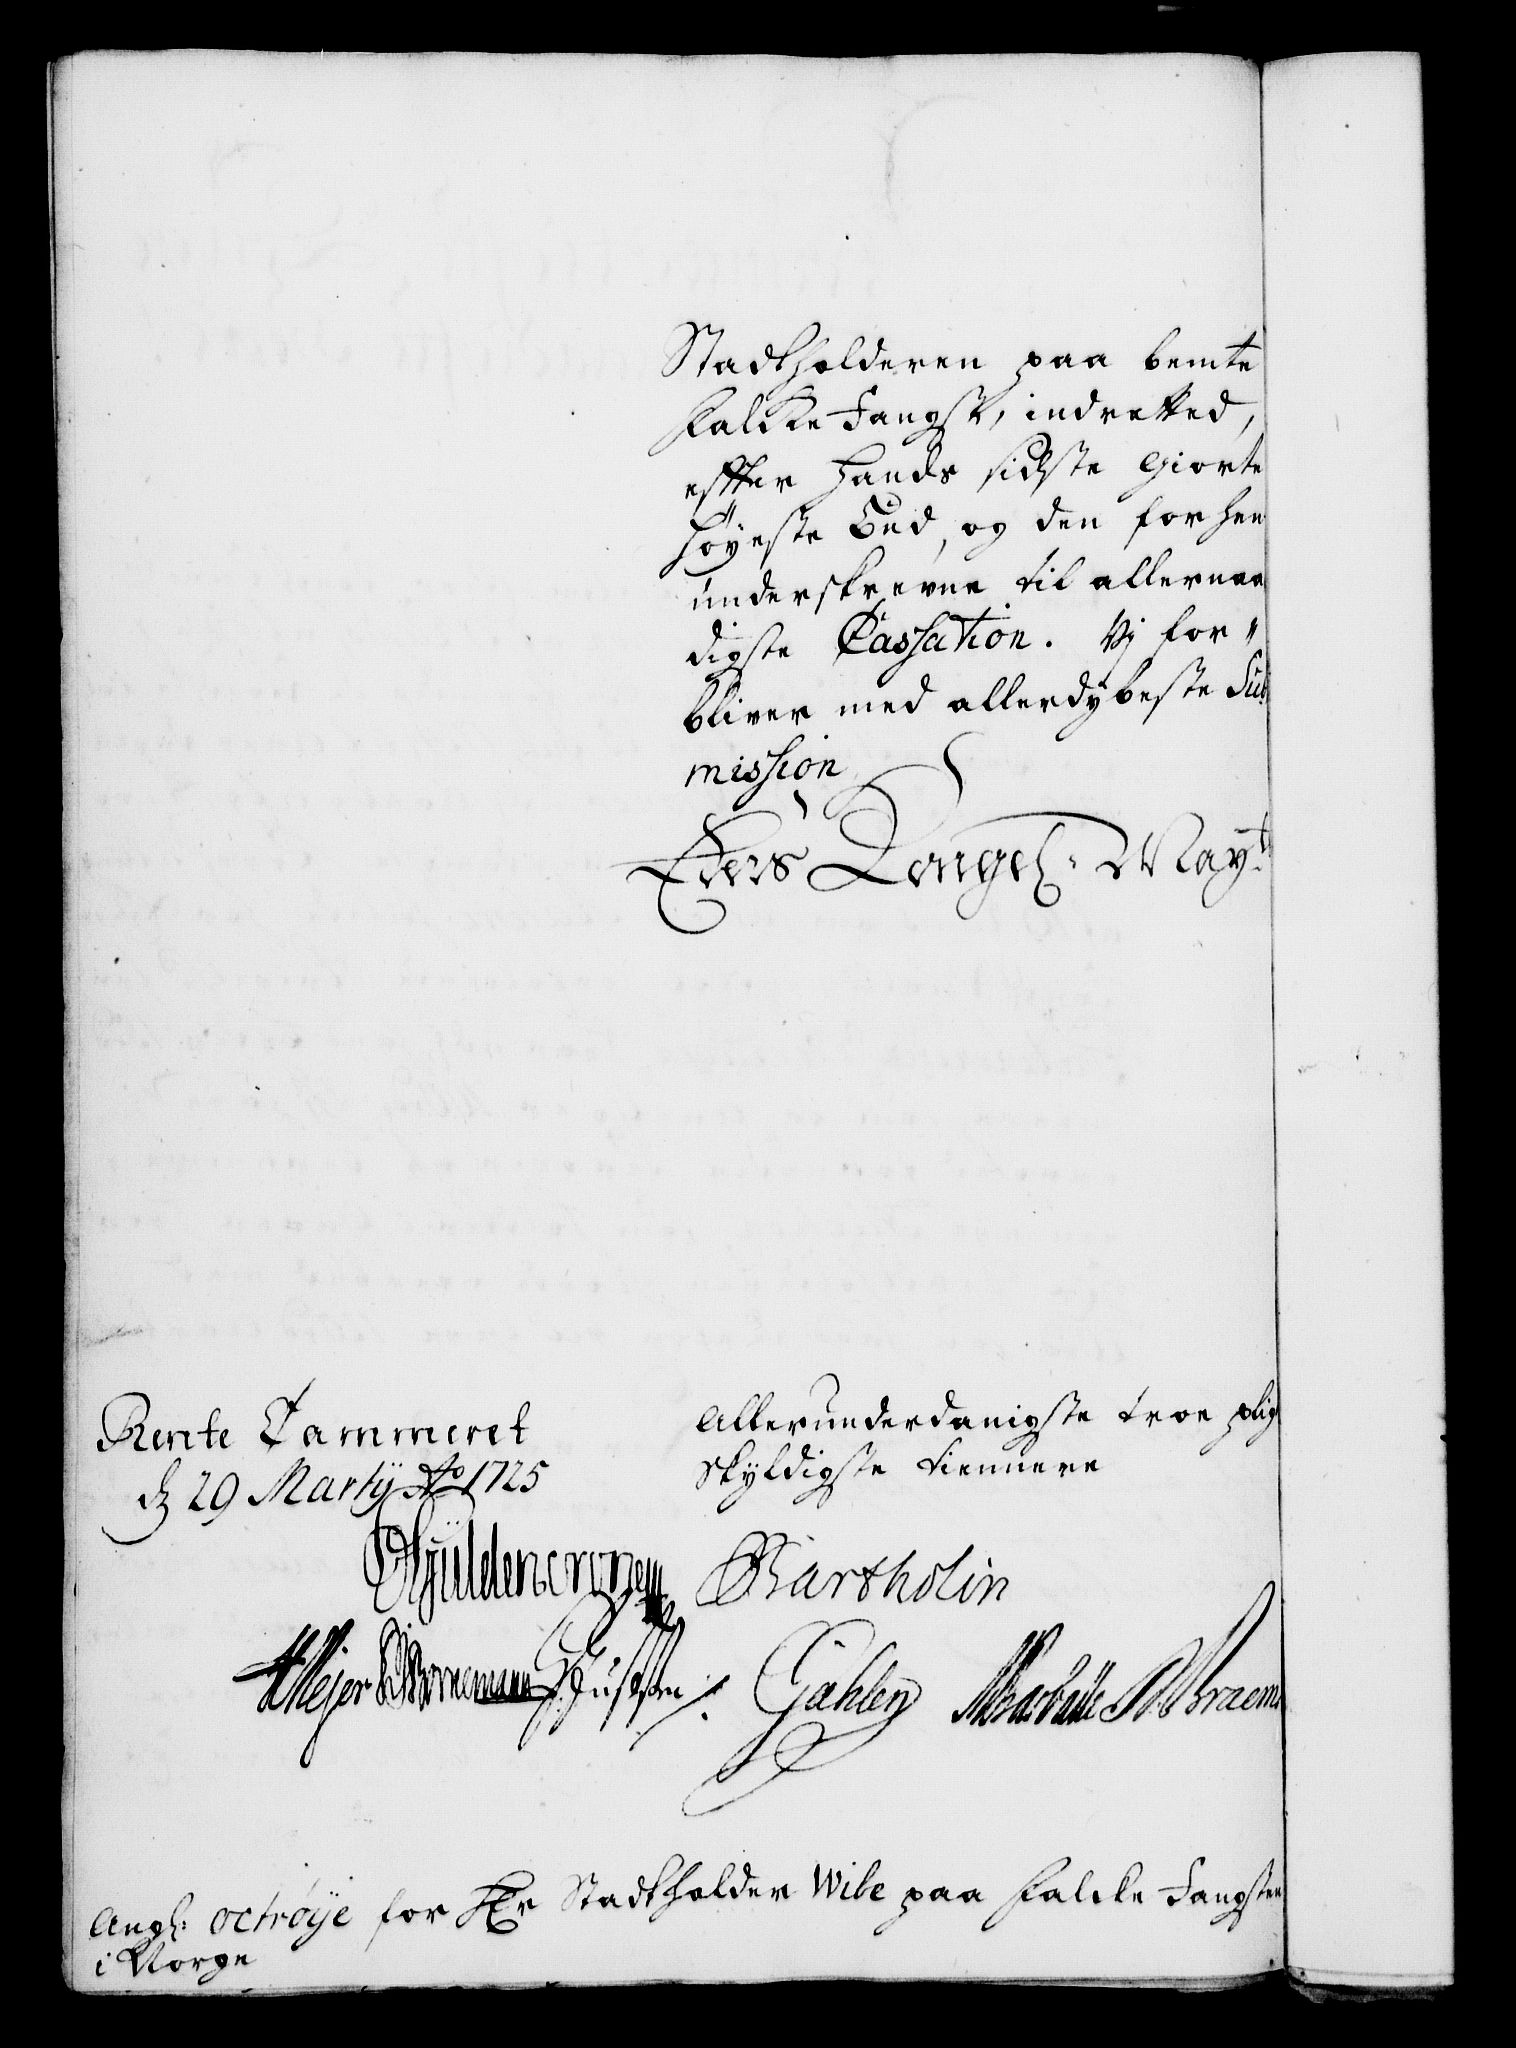 Stadtholderen paa bemte
Falcke Fangst, indretted,
effter hands sidste giorte
høyeste Bud, og den forhen
underskrevne til allernaa
digste Cassation. Vj for"
bliver med allerdybeste Sub
mission
Eders Kongel: Mayt:
Rente Cammeret
d 29 Martij Ao 1725
Allerunderdanigste troe plig
skyldigste tiennere
Gyldencrone Bartholin
Mejer Bornemann Justsen Gähler Braem
Angl: octrøye for Hr Stadtholder Wibe paa Falcke Fangsten
i Norge